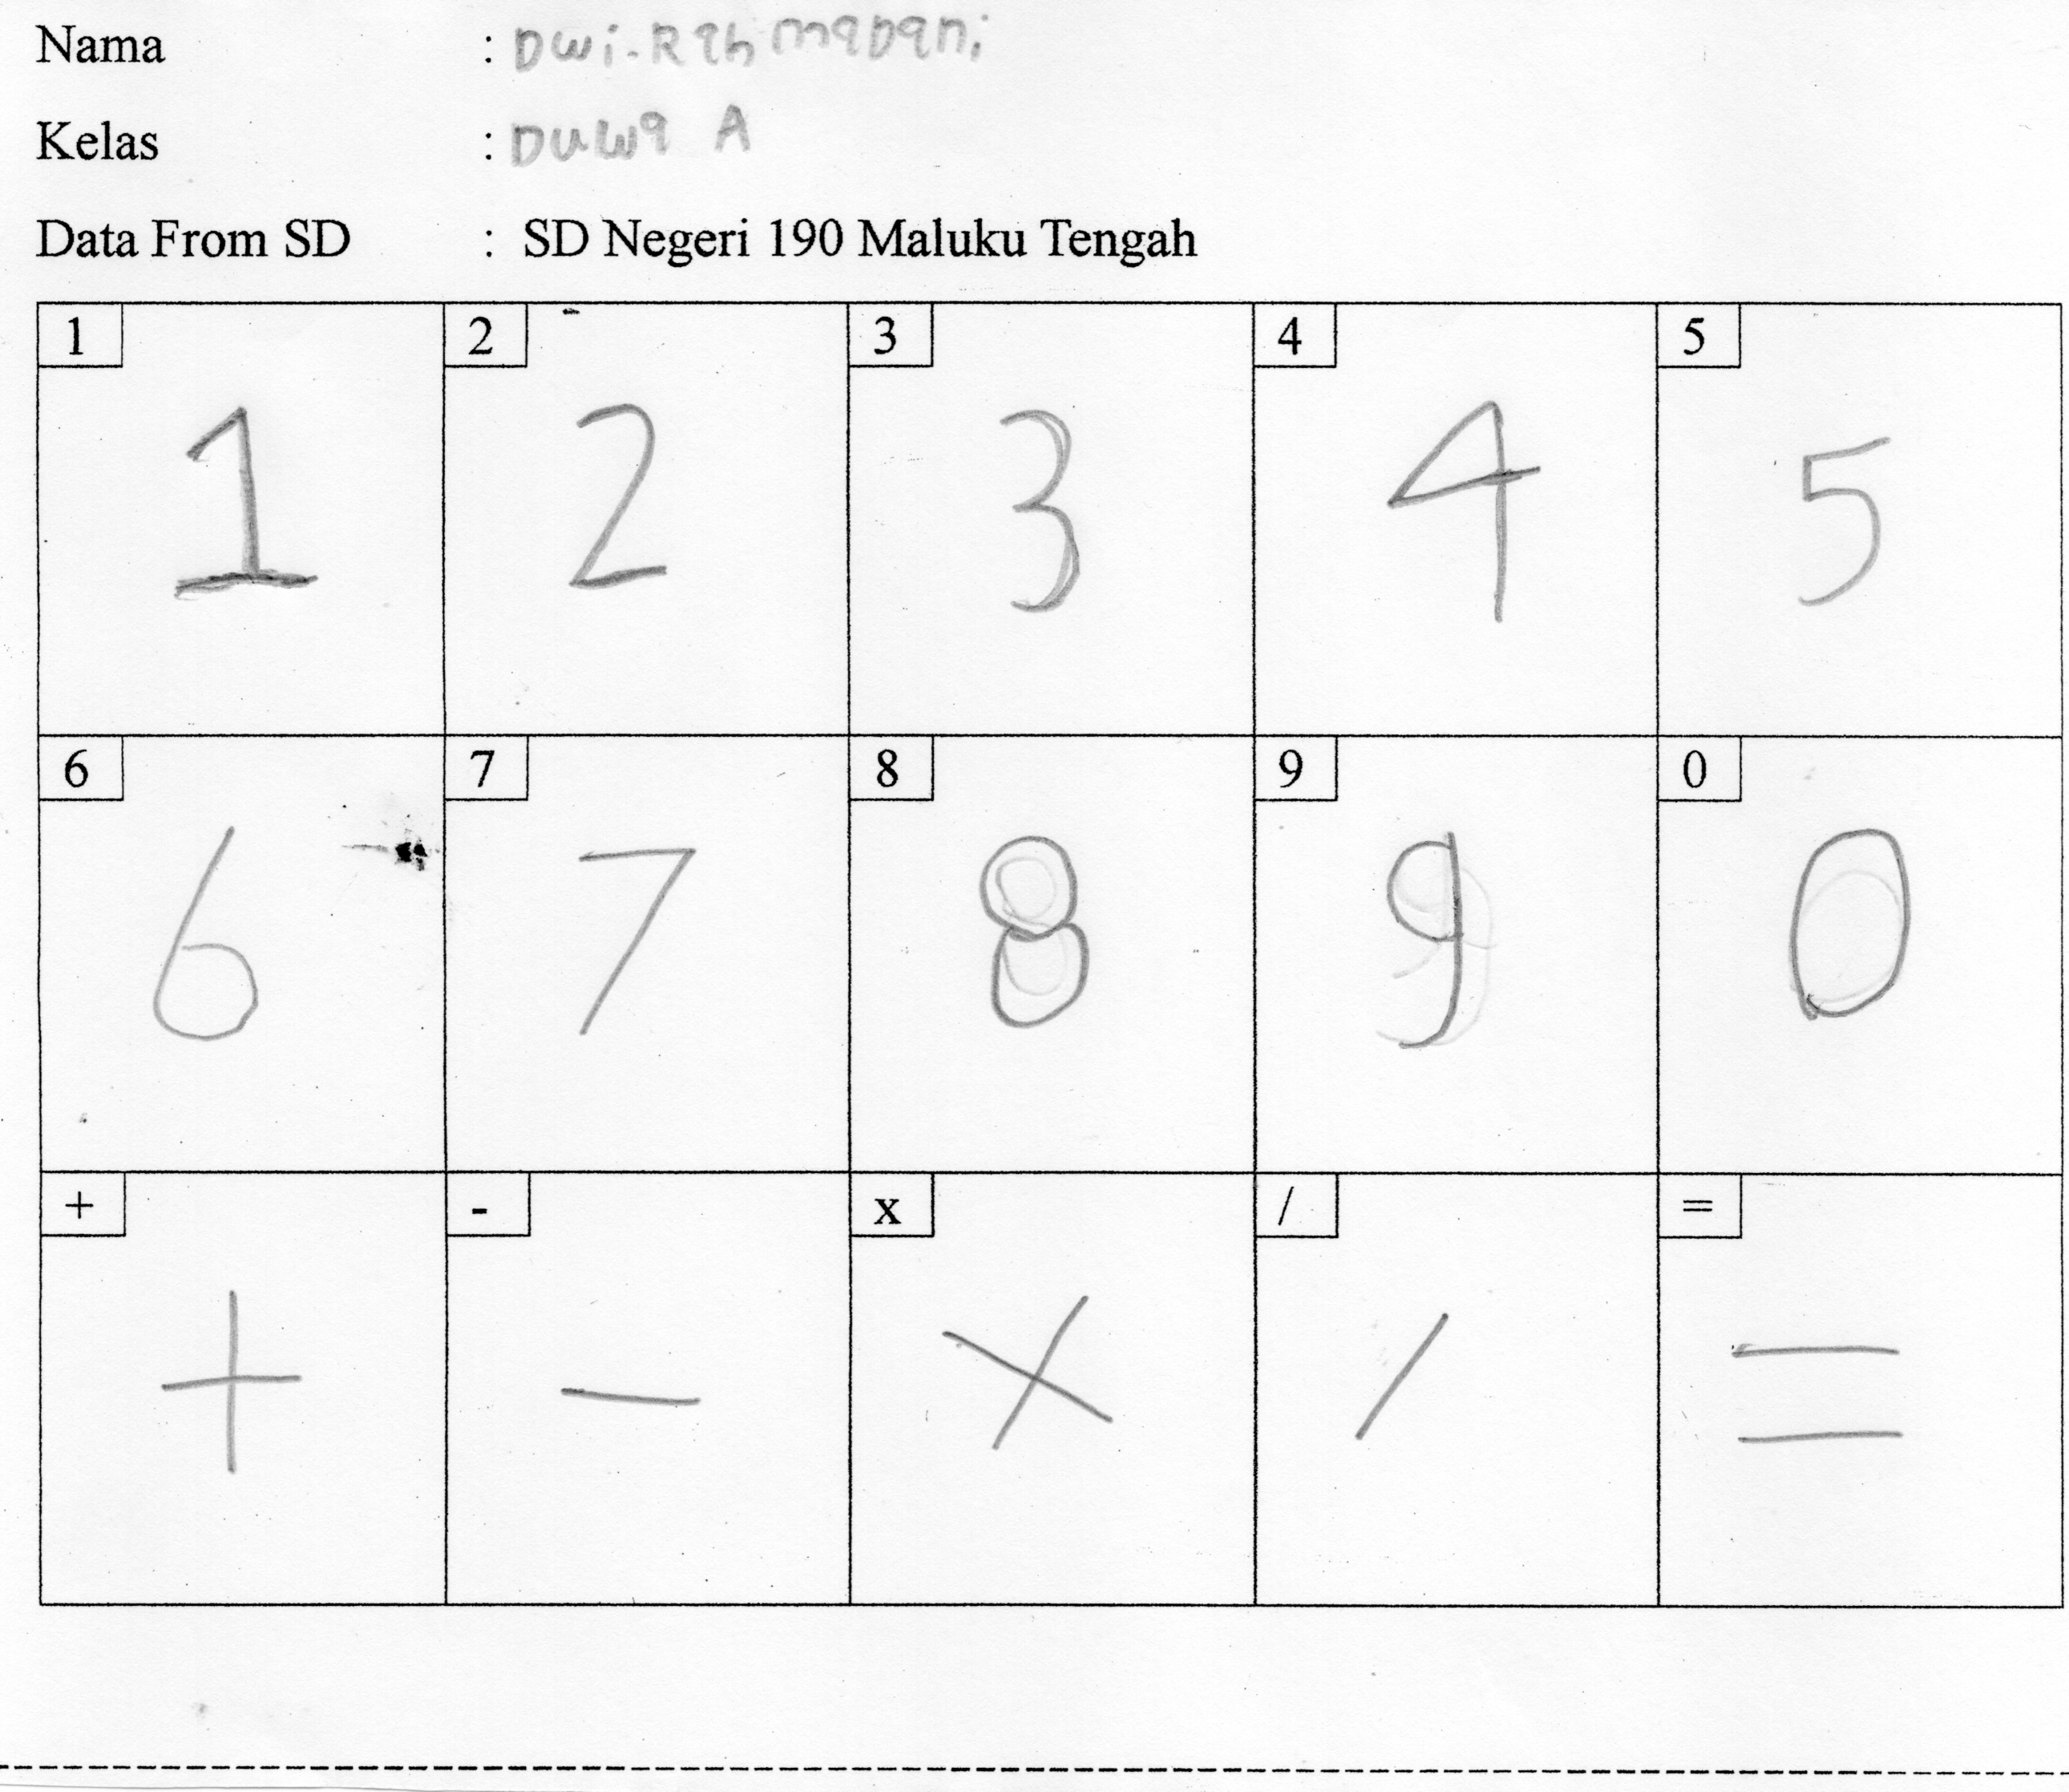 Nama : Dwi-Rahmadani
Kelas : Duwa A
Data From SD : SD Negeri 190 Maluku Tengah
1 2 3 4 5
1 2 3 4 5
6 7 8 9 0
6 7 8 9 0
+ - x / =
+ - x / =